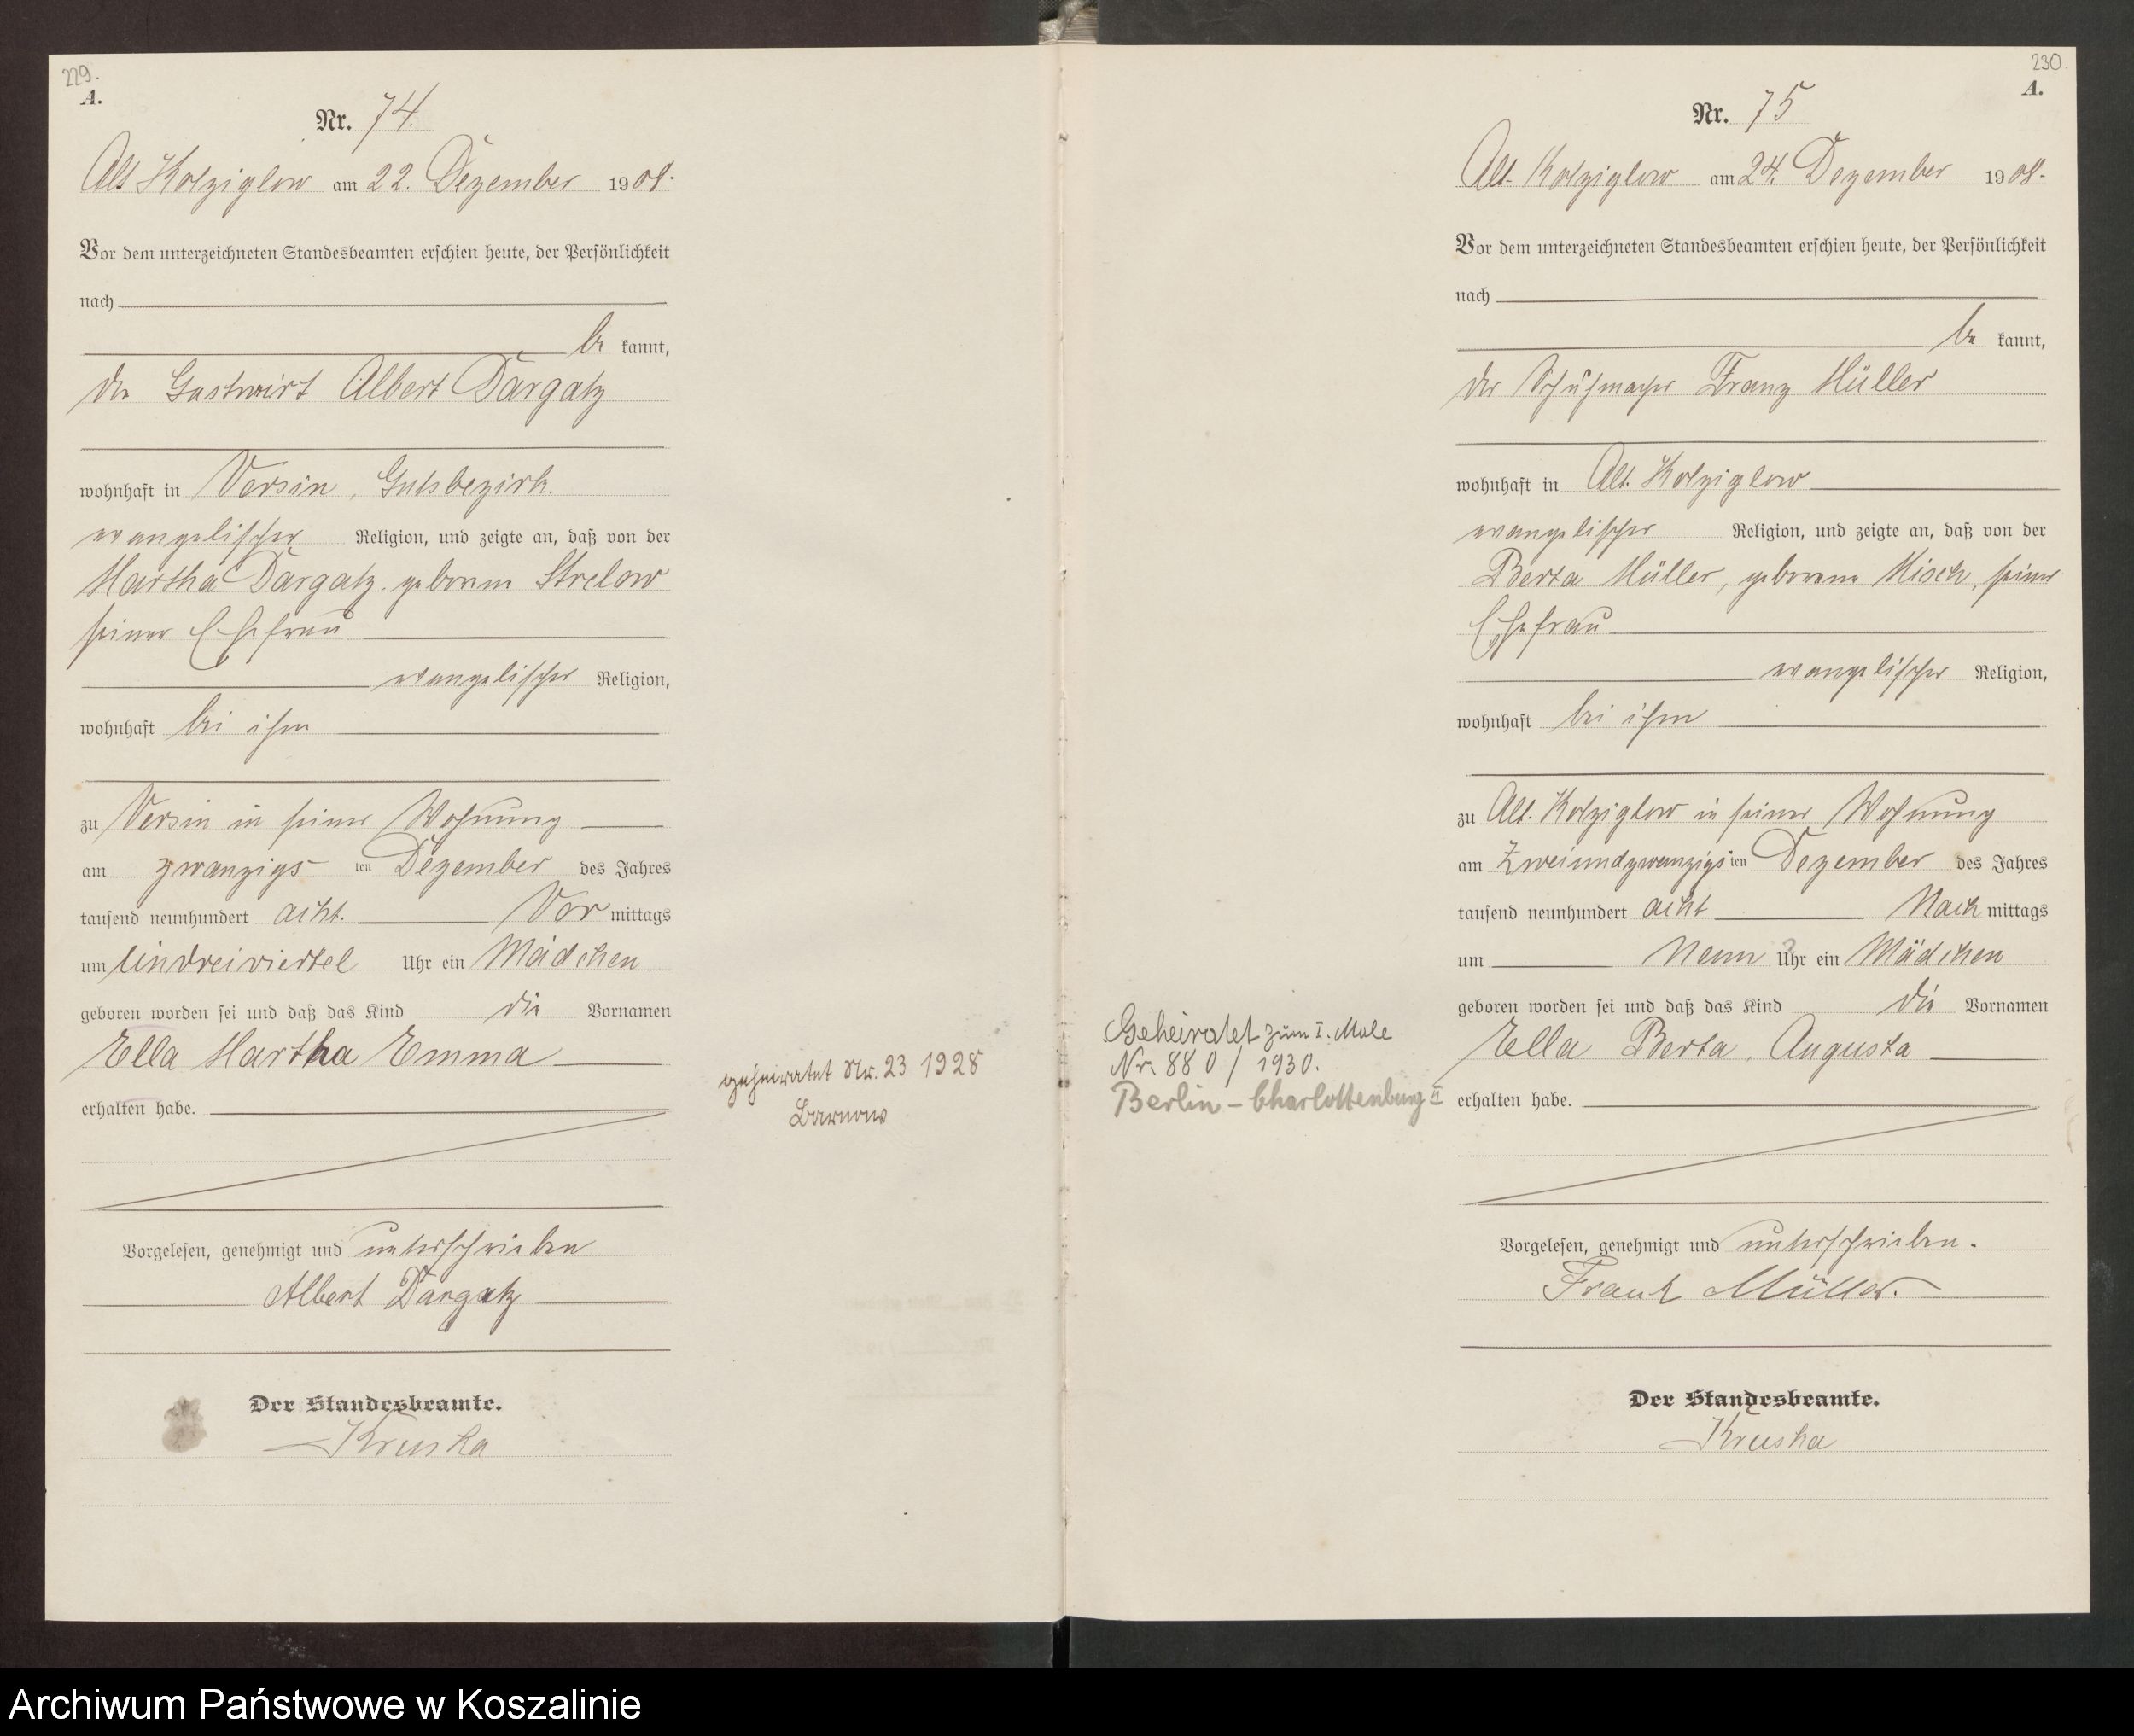 229.
A.
Nr. 74.
Alt Kolziglow am 22. Dezember 1908.
Vor dem unterzeichneten Standesbeamten erschien heute, der Persönlichkeit
nach
be kannt,
der Gastwirt Albert Dargatz
wohnhaft in Versin, Gutsbezirk.
evangelischer Religion, und zeigte an, daß von der
Martha Dargatz geborene Strelow
seiner Ehefrau
evangelischer Religion,
wohnhaft bei ihm
zu Versin in seiner Wohnung
am zwanzigs ten Dezember des Jahres
tausend neunhundert acht. Vor mittags
um eindreiviertel Uhr ein Mädchen
geboren worden sei und daß das Kind die Vornamen
Ella Martha Emma
erhalten habe.
Vorgelesen, genehmigt und unterschrieben
Albert Dargatz
Der Standesbeamte.
Kruska
geheiratet Nr. 23 1928
Barnow
230.
A.
Nr. 75
Alt. Kolziglow am 24. Dezember 1908.
Vor dem unterzeichneten Standesbeamten erschien heute, der Persönlichkeit
nach
be kannt,
der Schuhmacher Franz Müller
wohnhaft in Alt. Kolziglow
evangelischer Religion, und zeigte an, daß von der
Berta Müller, geborene Misch, seiner
Ehefrau
evangelischer Religion,
wohnhaft bei ihm
zu Alt. Kolziglow in seiner Wohnung
am Zweiundzwanzigs ten Dezember des Jahres
tausend neunhundert acht Nach mittags
um Neun Uhr ein Mädchen
geboren worden sei und daß das Kind die Vornamen
Ella Berta, Augusta
erhalten habe.
Geheiratet zum I. Male
Nr. 880 / 1930.
Berlin - Charlottenburg II
Vorgelesen, genehmigt und unterschrieben.
Franz Müller.
Der Standesbeamte.
Kruska
Archiwum Państwowe w Koszalinie